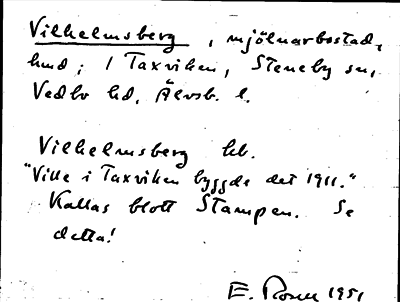 Vilhelmsberg, mjölnarbostad,
hmd; / Taxviken, Steneby sn,
Vedbo hd, Älvsb. l.
Vilhelmsberg lht.
"Ville i Taxviken byggde det 1911."
Kallas blott Stampen. Se
detta!
E. Rosell 1951